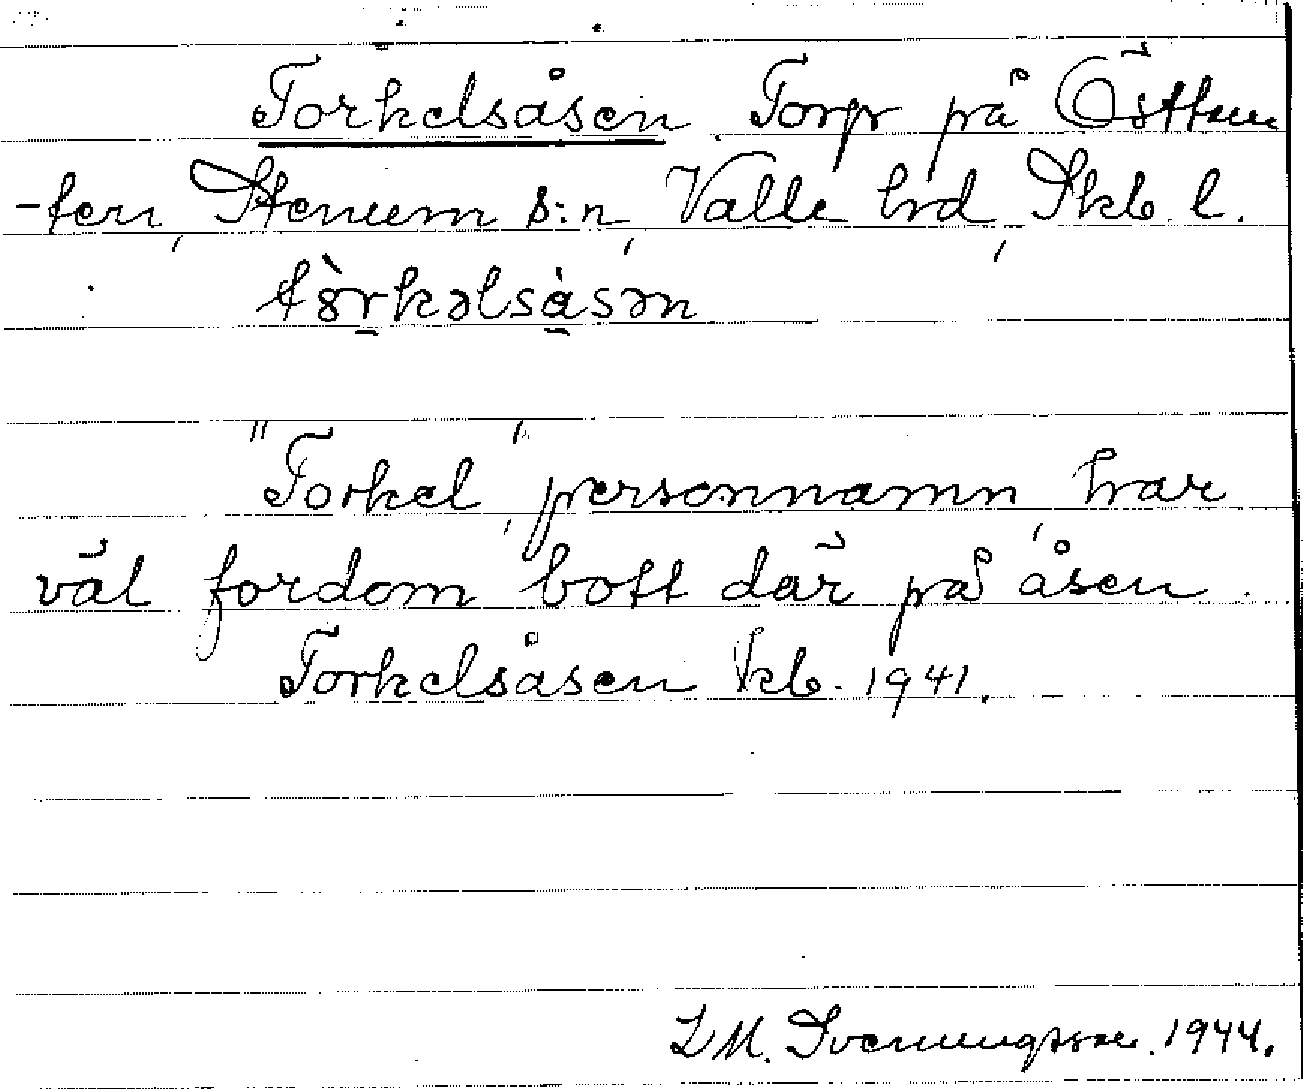 Torkelsåsen Torp på Östtom
-ten, Stenum s:n, Valle hrd, Skb. l.
tòrkəlsåsən
"Torkel", personnamn, har
väl fordom bott där på åsen
Torkelsåsen kb. 1941.
L M. Svenungsson. 1944.